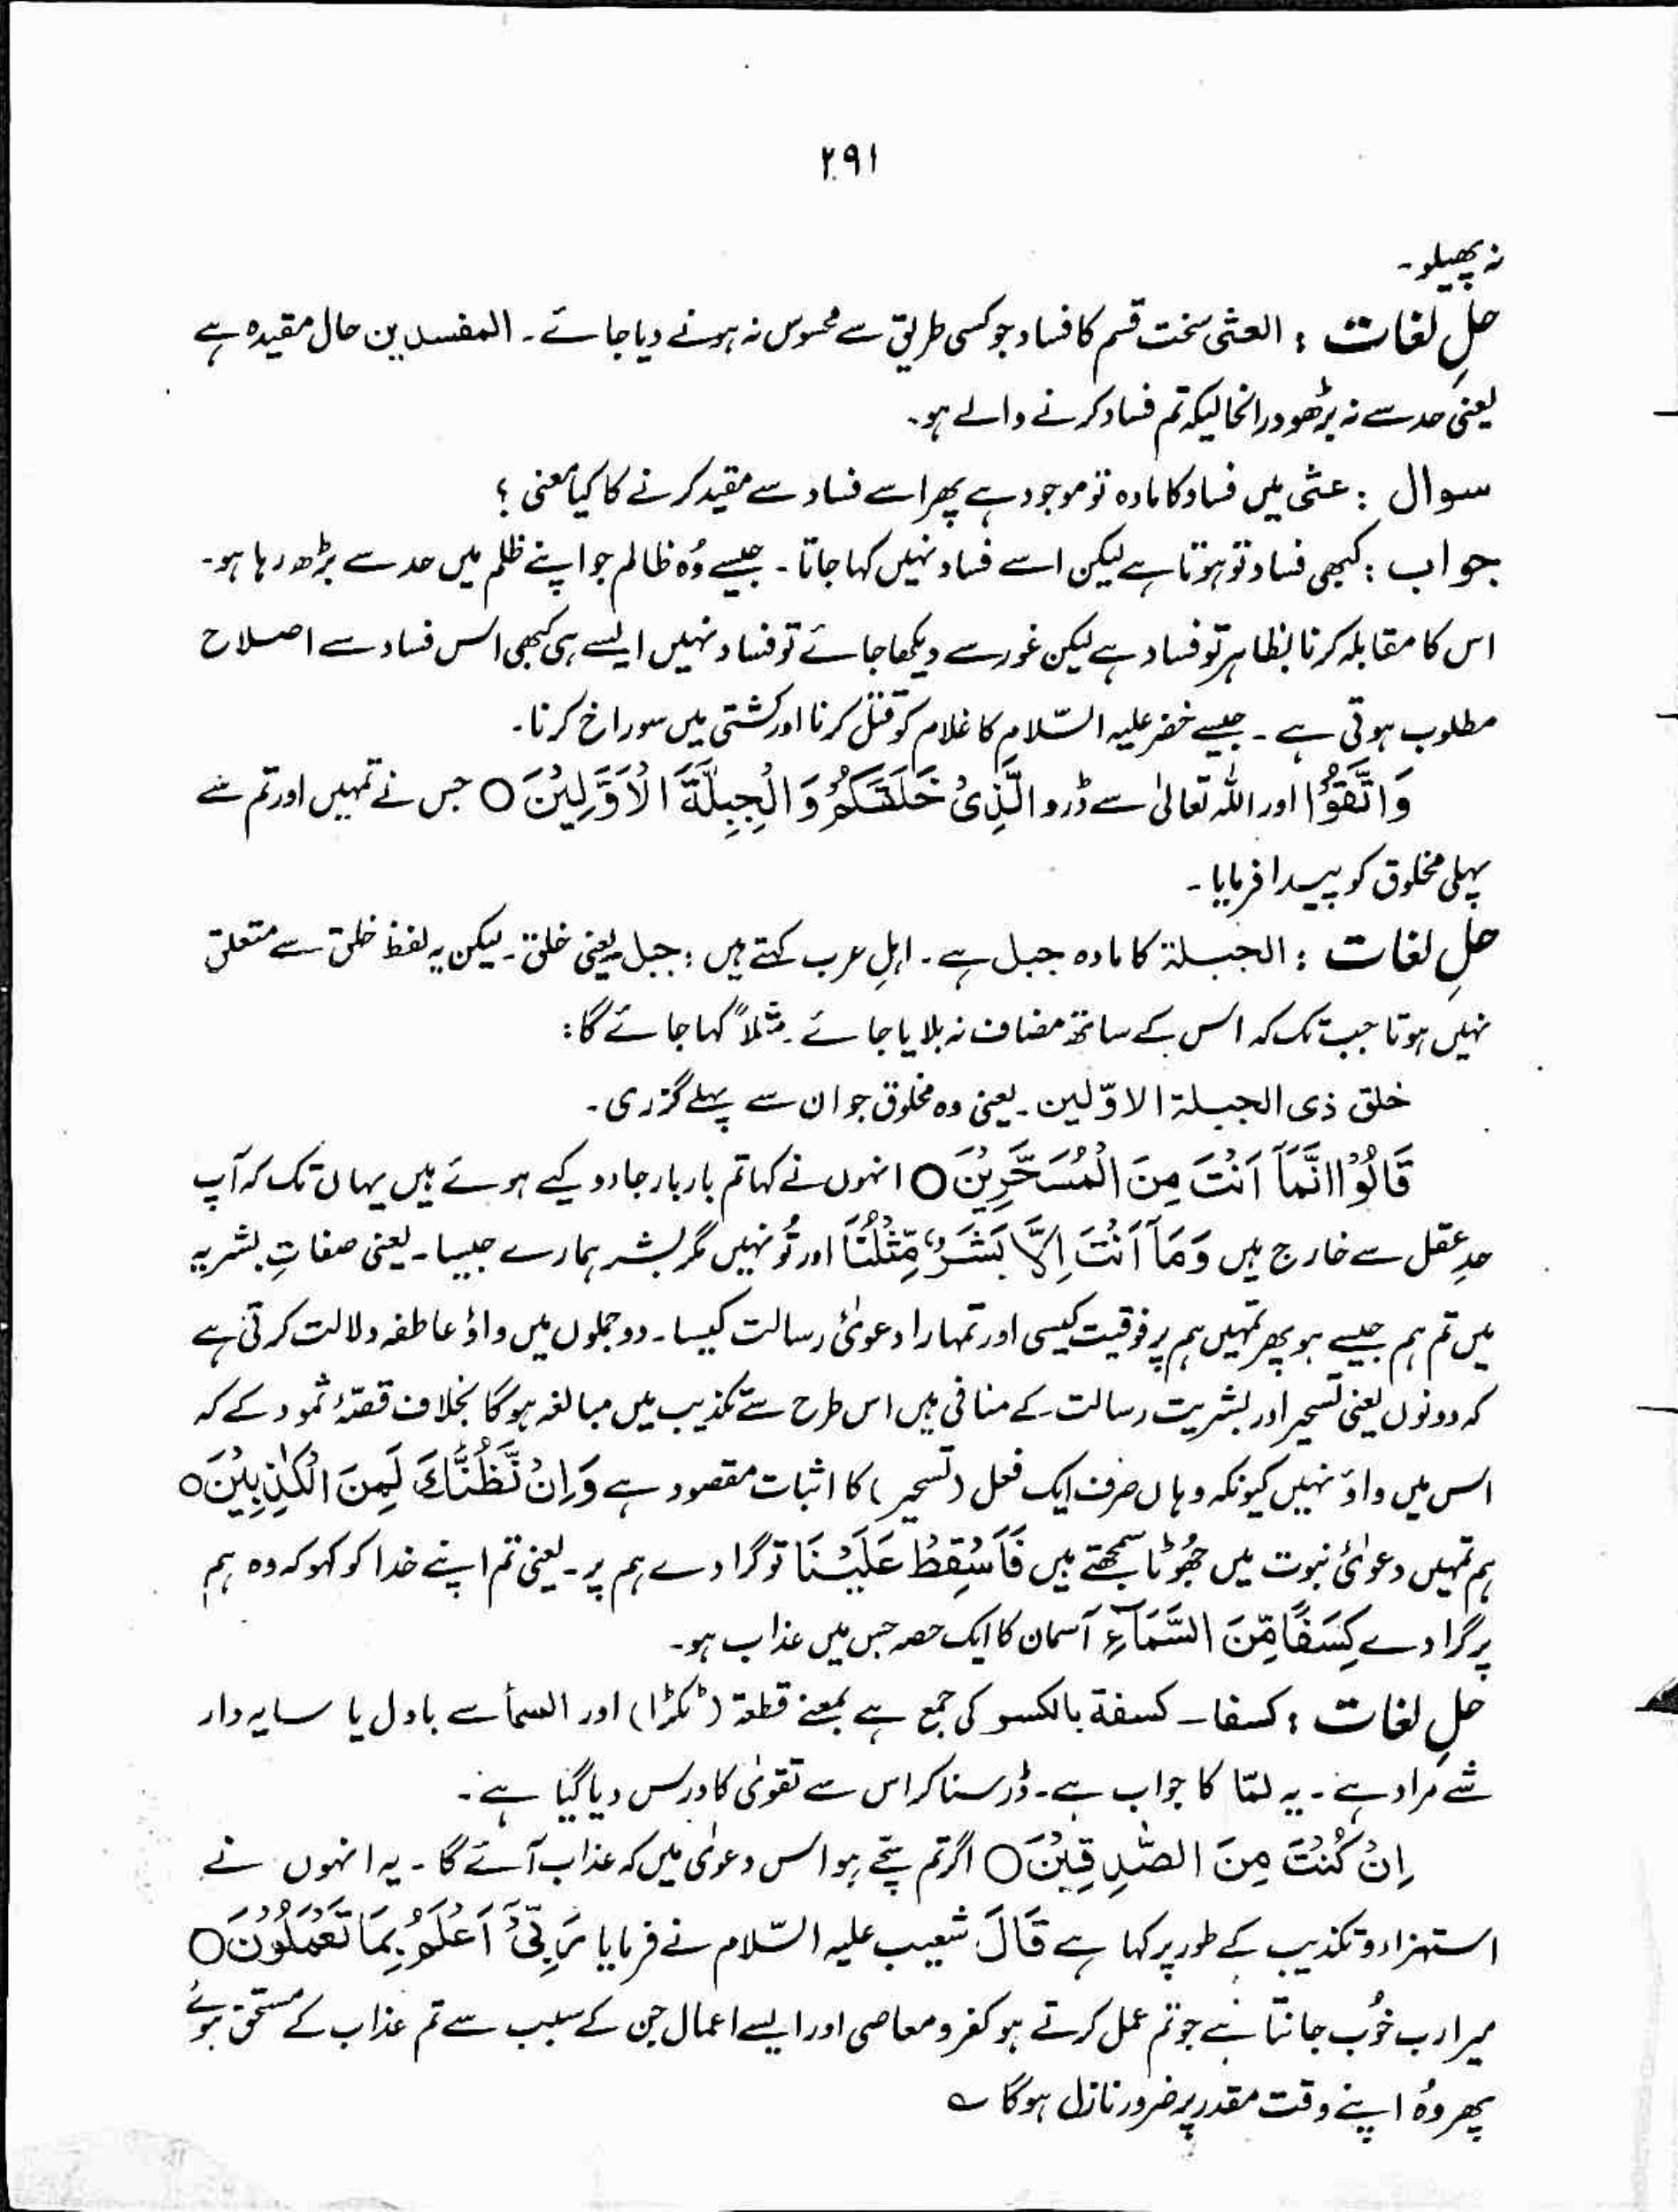 ۲۹۱
نہ پھیلو۔
حلِ لغات : العثی سخت قسم کا فساد جو کسی طریق سے محسوس نہ ہونے دیا جائے۔ المفسدین حال مقیدہ ہے
یعنی حد سے نہ بڑھو درانحالیکہ تم فساد کرنے والے ہو۔
سوال : عثی میں فساد کا مادہ تو موجود ہے پھر اسے فساد سے مقید کرنے کا کیا معنی ؟
جواب : کبھی فساد تو ہوتا ہے لیکن اسے فساد نہیں کہا جاتا۔ جیسے وُہ ظالم جو اپنے ظلم میں حد سے بڑھ رہا ہو۔
اس کا مقابلہ کرنا بظاہر تو فساد ہے لیکن غور سے دیکھا جائے تو فساد نہیں ایسے ہی کبھی اس فساد سے اصلاح
مطلوب ہوتی ہے۔ جیسے خضر علیہ السّلام کا غلام کو قتل کرنا اور کشتی میں سوراخ کرنا۔
وَاتَّقُوا اور اللہ تعالیٰ سے ڈرو الَّذِیْ خَلَقَکُمْ وَ الْجِبِلَّۃَ الْاَوَّلِیْنَ ○ جس نے تمہیں اور تم سے
پہلی مخلوق کو پیدا فرمایا۔
حلِ لغات : الجبلۃ کا مادہ جبل ہے۔ اہلِ عرب کہتے ہیں : جبل یعنی خلق۔ لیکن یہ لفظ خلق سے متعلق
نہیں ہوتا جب تک کہ اس کے ساتھ مضاف نہ بلایا جائے۔ مثلاً کہا جائے گا :
خلق ذی الجبلۃ الاوّلین۔ یعنی وہ مخلوق جو ان سے پہلے گزری۔
قَالُوْٓا اِنَّمَآ اَنْتَ مِنَ الْمُسَحَّرِیْنَ ○ انہوں نے کہا تم بار بار جادو کیے ہوئے ہیں یہاں تک کہ آپ
حدِ عقل سے خارج ہیں وَمَآ اَنْتَ اِلَّا بَشَرٌ مِّثْلُنَا اور تُو نہیں مگر بشر ہمارے جیسا۔ یعنی صفاتِ بشریہ
میں تم ہم جیسے ہو پھر تمہیں ہم پر فوقیت کیسی اور تمہارا دعویٰ رسالت کیسا۔ دو جملوں میں واؤ عاطفہ دلالت کرتی ہے
کہ دونوں یعنی تسحیر اور بشریت رسالت کے منافی ہیں اس طرح سے تکذیب میں مبالغہ ہوگا بخلاف قصّۂ ثمود کے کہ
اس میں واؤ نہیں کیونکہ وہاں صرف ایک فعل (تسحیر) کا اثبات مقصود ہے وَاِنْ نَّظُنُّکَ لَمِنَ الْکٰذِبِیْنَ ○
ہم تمہیں دعویٔ نبوت میں جھُوٹا سمجھتے ہیں فَاَسْقِطْ عَلَیْنَا تو گرا دے ہم پر۔ یعنی تم اپنے خدا کو کہو کہ وہ ہم
پر گرا دے کِسَفًا مِّنَ السَّمَآءِ آسمان کا ایک حصہ جس میں عذاب ہو۔
حلِ لغات : کسفا۔ کسفۃ بالکسر کی جمع ہے بمعنے قطعۃ (ٹکڑا) اور السمأ سے بادل یا سایہ دار
شے مراد ہے۔ یہ لمّا کا جواب ہے۔ ڈر سنا کر اس سے تقویٰ کا درس دیا گیا ہے۔
اِنْ کُنْتَ مِنَ الصّٰدِقِیْنَ ○ اگر تم سچّے ہو اس دعویٰ میں کہ عذاب آئے گا۔ یہ انہوں نے
استہزاء و تکذیب کے طور پر کہا ہے قَالَ شعیب علیہ السّلام نے فرمایا رَبِّیْٓ اَعْلَمُ بِمَا تَعْمَلُوْنَ ○
میرا رب خُوب جانتا ہے جو تم عمل کرتے ہو کفر و معاصی اور ایسے اعمال جن کے سبب سے تم عذاب کے مستحق ہوئے
پھر وُہ اپنے وقت مقدر پر ضرور نازل ہوگا ؎